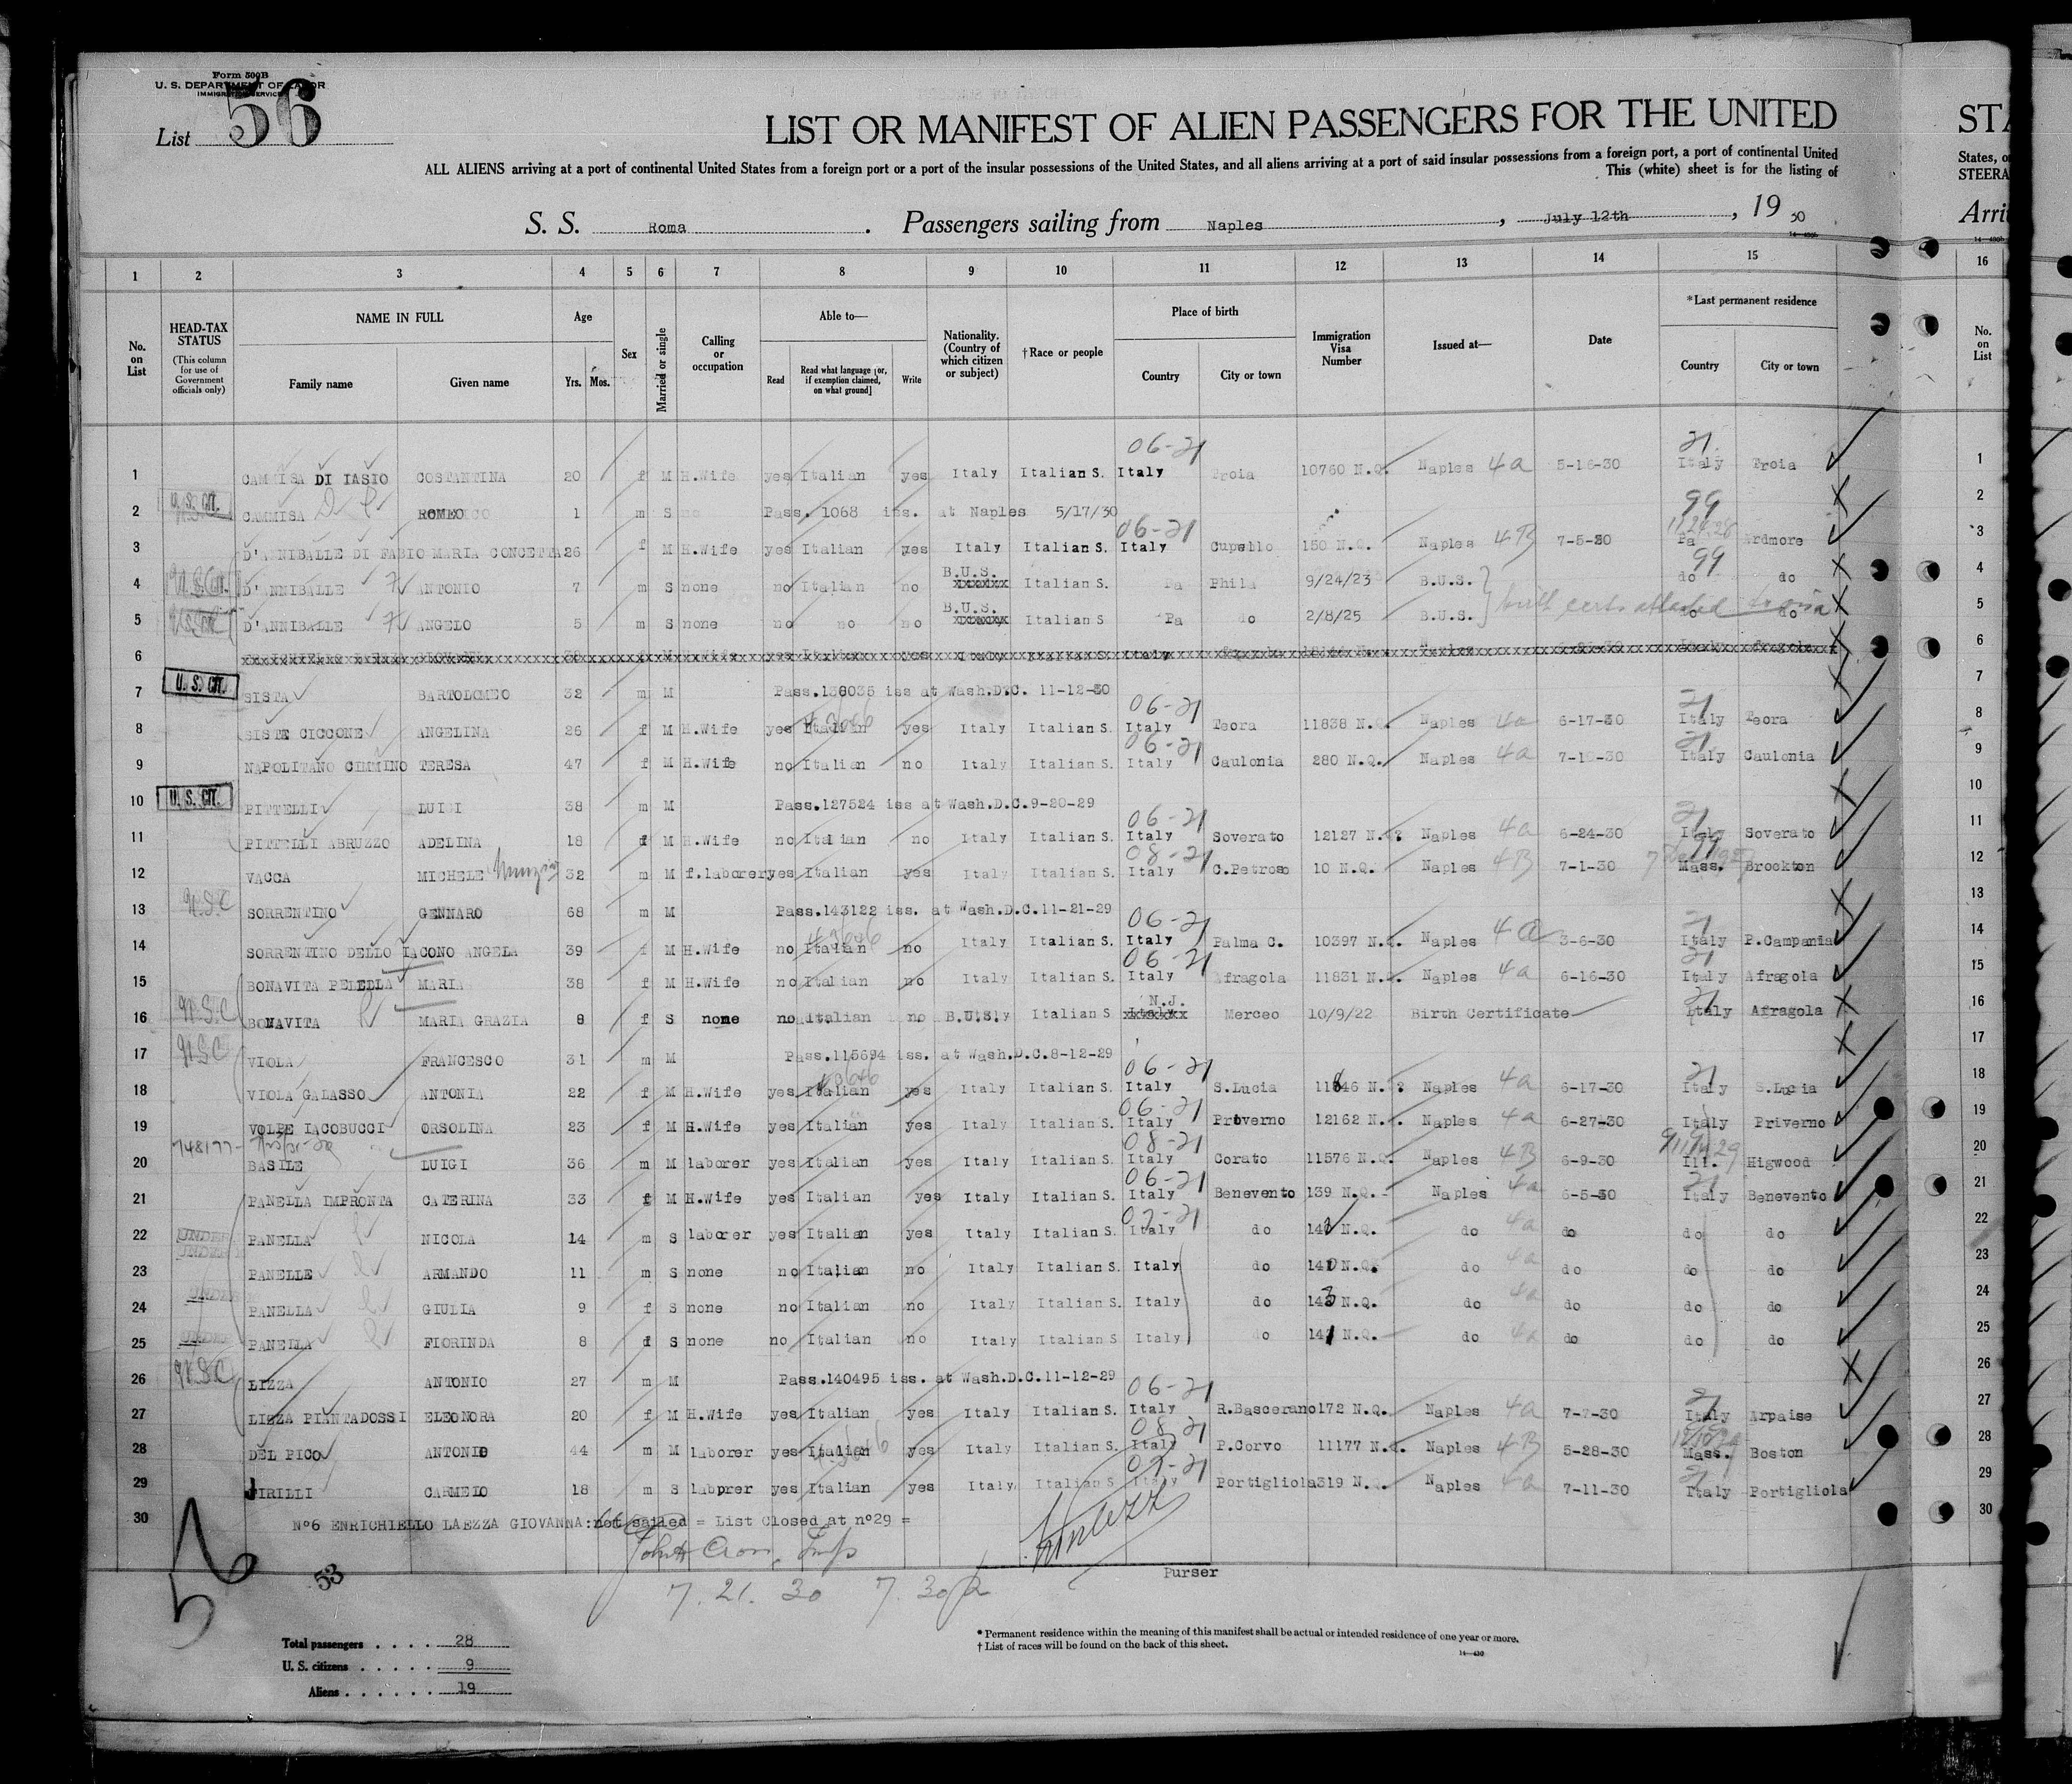 Form 500B
U. S. DEPARTMENT OF LABOR
IMMIGRATION SERVICE
List 56
LIST OR MANIFEST OF ALIEN PASSENGERS FOR THE UNITED
STA
ALL ALIENS arriving at a port of continental United States from a foreign port or a port of the insular possessions of the United States, and all aliens arriving at a port of said insular possessions from a foreign port, a port of continental United
States, o
This (white) sheet is for the listing of
STEERA
S. S. Roma. Passengers sailing from Naples, July 12th, 19 30
Arri
1 2 3 4 5 6 7 8 9 10 11 12 13 14 15 16
No. on List
HEAD-TAX STATUS (This column for use of Government officials only)
NAME IN FULL Family name Given name
Age Yrs. Mos.
Sex
Married or single
Calling or occupation
Able to— Read Read what language [or, if exemption claimed, on what ground] Write
Nationality. (Country of which citizen or subject)
†Race or people
Place of birth Country City or town
Immigration Visa Number
Issued at—
Date
*Last permanent residence Country City or town
No. on List
06-21 21
1 CAMMISA DI IASIO COSTANTINA 20 f M H.Wife yes Italian yes Italy Italian S. Italy Troia 10760 N.Q. Naples 4a 5-16-30 Italy Troia 1
U.S. CIT. 99
2 CAMMISA ROMEO 1 m S no Pass. 1068 iss. at Naples 5/17/30 2
06-21
3 D'ANNIBALLE DI FABIO MARIA CONCETTA 26 f M H.Wife yes Italian yes Italy Italian S. Italy Cupello 150 N.Q. Naples 4B 7-5-30 Pa Ardmore 3
99
4 D'ANNIBALLE ANTONIO 7 m S none no Italian no B.U.S. Italian S. Pa Phila 9/24/23 B.U.S. do do 4
5 D'ANNIBALLE ANGELO 5 m S none no no no B.U.S. Italian S Pa do 2/8/25 B.U.S. do do 5
6 Italy Naples 6
U. S. CIT.
7 SISTA BARTOLOMEO 32 m M Pass.138035 iss at Wash.D.C. 11-12-30 7
06-21 21
8 SISTE CICCONE ANGELINA 26 f M H.Wife yes Italian yes Italy Italian S. Italy Teora 11838 N.Q. Naples 4a 6-17-30 Italy Teora 8
06-21 21
9 NAPOLITANO CIMMINO TERESA 47 f M H.Wife no Italian no Italy Italian S. Italy Caulonia 280 N.Q. Naples 4a 7-1-30 Italy Caulonia 9
U. S. CIT.
10 PITTELLI LUIGI 38 m M Pass.127524 iss at Wash.D.C.9-20-29 10
06-21 21
11 PITTELLI ABRUZZO ADELINA 18 f M H.Wife no Italian no Italy Italian S. Italy Soverato 12127 N.Q. Naples 4a 6-24-30 Italy Soverato 11
08-21 99
12 VACCA MICHELE Nunzio 32 m M f.laborer yes Italian yes Italy Italian S. Italy C.Petroso 10 N.Q. Naples 4B 7-1-30 Mass. Brockton 12
U.S.C
13 SORRENTINO GENNARO 68 m M Pass.143122 iss. at Wash.D.C.11-21-29 13
06-21 21
14 SORRENTINO DELLO IACONO ANGELA 39 f M H.Wife no Italian no Italy Italian S. Italy Palma C. 10397 N.Q. Naples 4a 3-6-30 Italy P.Campania 14
06-21 21
15 BONAVITA PELELLA MARIA 38 f M H.Wife no Italian no Italy Italian S. Italy Afragola 11831 N.Q. Naples 4a 6-16-30 Italy Afragola 15
U.S.C N.J. 21
16 BONAVITA MARIA GRAZIA 8 f S none no Italian no B.U.S. Italian S Merceo 10/9/22 Birth Certificate Italy Afragola 16
U.S.C
17 VIOLA FRANCESCO 31 m M Pass.115694 iss. at Wash.D.C.8-12-29 17
06-21 21
18 VIOLA GALASSO ANTONIA 22 f M H.Wife yes Italian yes Italy Italian S. Italy S.Lucia 11846 N.Q. Naples 4a 6-17-30 Italy S.Lucia 18
06-21
19 VOLPE IACOBUCCI ORSOLINA 23 f M H.Wife yes Italian yes Italy Italian S. Italy Priverno 12162 N.Q. Naples 4a 6-27-30 Italy Priverno 19
748177- 08-21
20 BASILE LUIGI 36 m M laborer yes Italian yes Italy Italian S. Italy Corato 11576 N.Q. Naples 4B 6-9-30 Ill. Higwood 20
06-21 21
21 PANELLA IMPRONTA CATERINA 33 f M H.Wife yes Italian yes Italy Italian S. Italy Benevento 139 N.Q. Naples 4a 6-5-30 Italy Benevento 21
UNDER 07-21
22 PANELLA NICOLA 14 m S laborer yes Italian yes Italy Italian S. Italy do N.Q. do 4a do do do 22
23 PANELLE ARMANDO 11 m S none no Italian no Italy Italian S. Italy do 140 N.Q. do 4a do do do 23
24 PANELLA GIULIA 9 f S none no Italian no Italy Italian S. Italy do 143 N.Q. do 4a do do do 24
25 PANELLA FIORINDA 8 f S none no Italian no Italy Italian S Italy do 141 N.Q. do 4a do do do 25
U.S.C
26 LIZZA ANTONIO 27 m M Pass.140495 iss. at Wash.D.C.11-12-29 26
06-21 21
27 LIZZA PIANTADOSSI ELEONORA 20 f M H.Wife yes Italian yes Italy Italian S. Italy R.Bascerano 172 N.Q. Naples 4a 7-7-30 Italy Arpaise 27
08-21
28 DEL PICO ANTONIO 44 m M laborer yes Italian yes Italy Italian S. Italy P.Corvo 11177 N.Q. Naples 4B 5-28-30 Mass. Boston 28
07-21 21
29 JIRILLI CARMELO 18 m S labprer yes Italian yes Italy Italian S Italy Portigliola 319 N.Q. Naples 4a 7-11-30 Italy Portigliola 29
30 N°6 ENRICHIELLO LAEZZA GIOVANNA:not sailed = List Closed at n°29 = 30
56
53
Purser
7. 21. 30 7. 30
Total passengers . . . . 28
U. S. citizens . . . . . 9
Aliens . . . . . . 19
* Permanent residence within the meaning of this manifest shall be actual or intended residence of one year or more.
† List of races will be found on the back of this sheet.